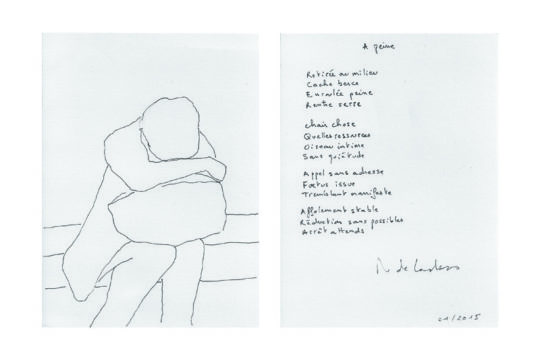 A peine
Retirée au milieu
Cache berce
Enroulée peine
Rentre serre
chair chose
Quelles ressources
Oiseau intime
Sans quiétude
Appel sans adresse
Fœtus issue
manifeste
Affolement stable
Réduction sans possibles
Arrêt attends
de
21/2015